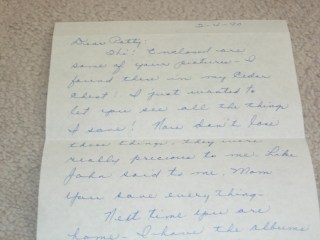 Dear Patty,
Hi! Enclosed are
some of your pictures - I
found these in my Cedar
Chest! I just wanted to
let you see all the things
I save! Now don't lose
these things, they were
really precious to me. Like
John said to me, Mom
you save everything.
Next time you are
home - I have the albums